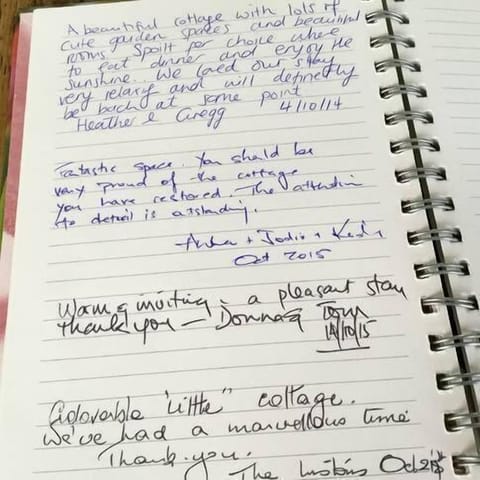 A beautiful cottage with lots of
cute garden spaces and beautiful
rooms. Spoilt for choice where
to eat dinner and enjoy the
sunshine. We loved our stay
very relaxing and will definetly
be back at some point
Heather & Gregg 4/10/14
Fantastic space. You should be
very proud of the cottage
you have restored. The attention
to detail is
+ Jodie +
Oct 2015
Warm & inviting - a pleasant stay
thank you - Donna &
14/10/15
Adorable "little" cottage.
We've had a marvellous time
Thank-you.
The